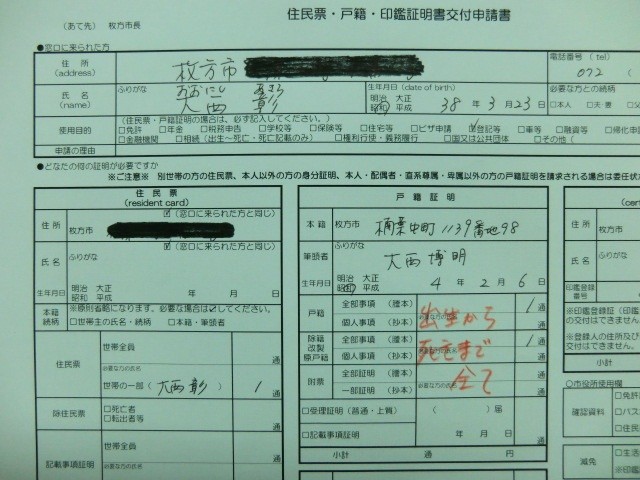 住民票・戸籍・印鑑証明書交付申請書
（あて先） 枚方市長
●窓口に来られた方
住 所 (address) 枚方市
電話番号（ tel ） 072 （
氏 名 (name) ふりがな おおにし あきら
大西 彰
生年月日 (date of birth) 明治 大正 昭和 平成 38 年 3 月 23 日
必要な方との続柄 □本人 □夫・妻 □父
使用目的 (住民票・戸籍証明の場合は、必ず記入してください。)
□免許 □年金 □税務申告 □学校等 □保険等 □住宅等 □ビザ申請 ☑登記等 □車等 □融資等 □帰化申
□金融機関 □相続（出生～死亡、死亡記載のみ） □権利行使・義務履行 □国又は公共団体 □その他（
申請の理由
●どなたの何の証明が必要ですか
※ご注意※ 別世帯の方の住民票、本人以外の方の身分証明、本人・配偶者・直系尊属・卑属以外の方の戸籍証明を請求される場合は委任状
住 民 票 (resident card)
住 所 ☑（窓口に来られた方と同じ）
枚方市
氏 名 ☑（窓口に来られた方と同じ）
ふりがな
生年月日 明治 大正 昭和 平成 年 月 日
本籍 続柄 ※原則省略になります。必要な場合は☑してください。
□世帯主の氏名・続柄 □本籍・筆頭者
住民票 世帯全員 通
必要な方の氏名
世帯の一部（ 大西 彰 ） 1 通
除住民票 □死亡者 □転出者等 通
記載事項証明 世帯全員 通
必要な方の氏名
戸 籍 証 明
本 籍 枚方市 楠葉中町1139番地98
筆頭者 ふりがな
大西 博明
生年月日 明治 大正 昭和 平成 4 年 2 月 6 日
戸籍 全部事項（謄本） 1 通
個人事項（抄本） 通
除籍 改製 原戸籍 全部事項（謄本） 1 通
個人事項（抄本） 通
附票 全部証明（謄本） 通
一部証明（抄本） 通
出生から
死亡まで
全て
□受理証明（普通・上質） （ ）届 通
□記載事項証明 年 月 日 通
小計 通 円
(cert
住 所
氏 名
生年月日
印鑑登録 番号
※印鑑登録証（
の交付はできません。
※登録人の住所及び
交付はできません。
小計
○市役所使用欄
確認資料 □免許
□パス
□住民
減免 □生活